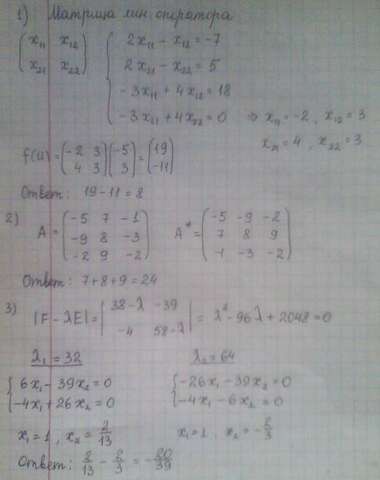 1) Матрица лин. оператора
( x₁₁ x₁₂ ) { 2x₁₁ - x₁₂ = -7
( x₂₁ x₂₂ ) { 2x₂₁ - x₂₂ = 5
{ -3x₁₁ + 4x₁₂ = 18
{ -3x₂₁ + 4x₂₂ = 0 ⇒ x₁₁ = -2 , x₁₂ = 3
x₂₁ = 4 , x₂₂ = 3
f(u) = ( -2 3 ; 4 3 ) ( -5 ; 3 ) = ( 19 ; -11 )
Ответ: 19 - 11 = 8
2) A = ( -5 7 -1 ; -9 8 -3 ; -2 9 -2 ) A* = ( -5 -9 -2 ; 7 8 9 ; -1 -3 -2 )
Ответ: 7 + 8 + 9 = 24
3) |F - λE| = | 38-λ -39 ; -4 58-λ | = λ² - 96λ + 2048 = 0
λ₁ = 32 λ₂ = 64
{ 6x₁ - 39x₂ = 0 { -26x₁ - 39x₂ = 0
{ -4x₁ + 26x₂ = 0 { -4x₁ - 6x₂ = 0
x₁ = 1 , x₂ = 2/13 x₁ = 1 , x₂ = -2/3
Ответ: 2/13 - 2/3 = -20/39